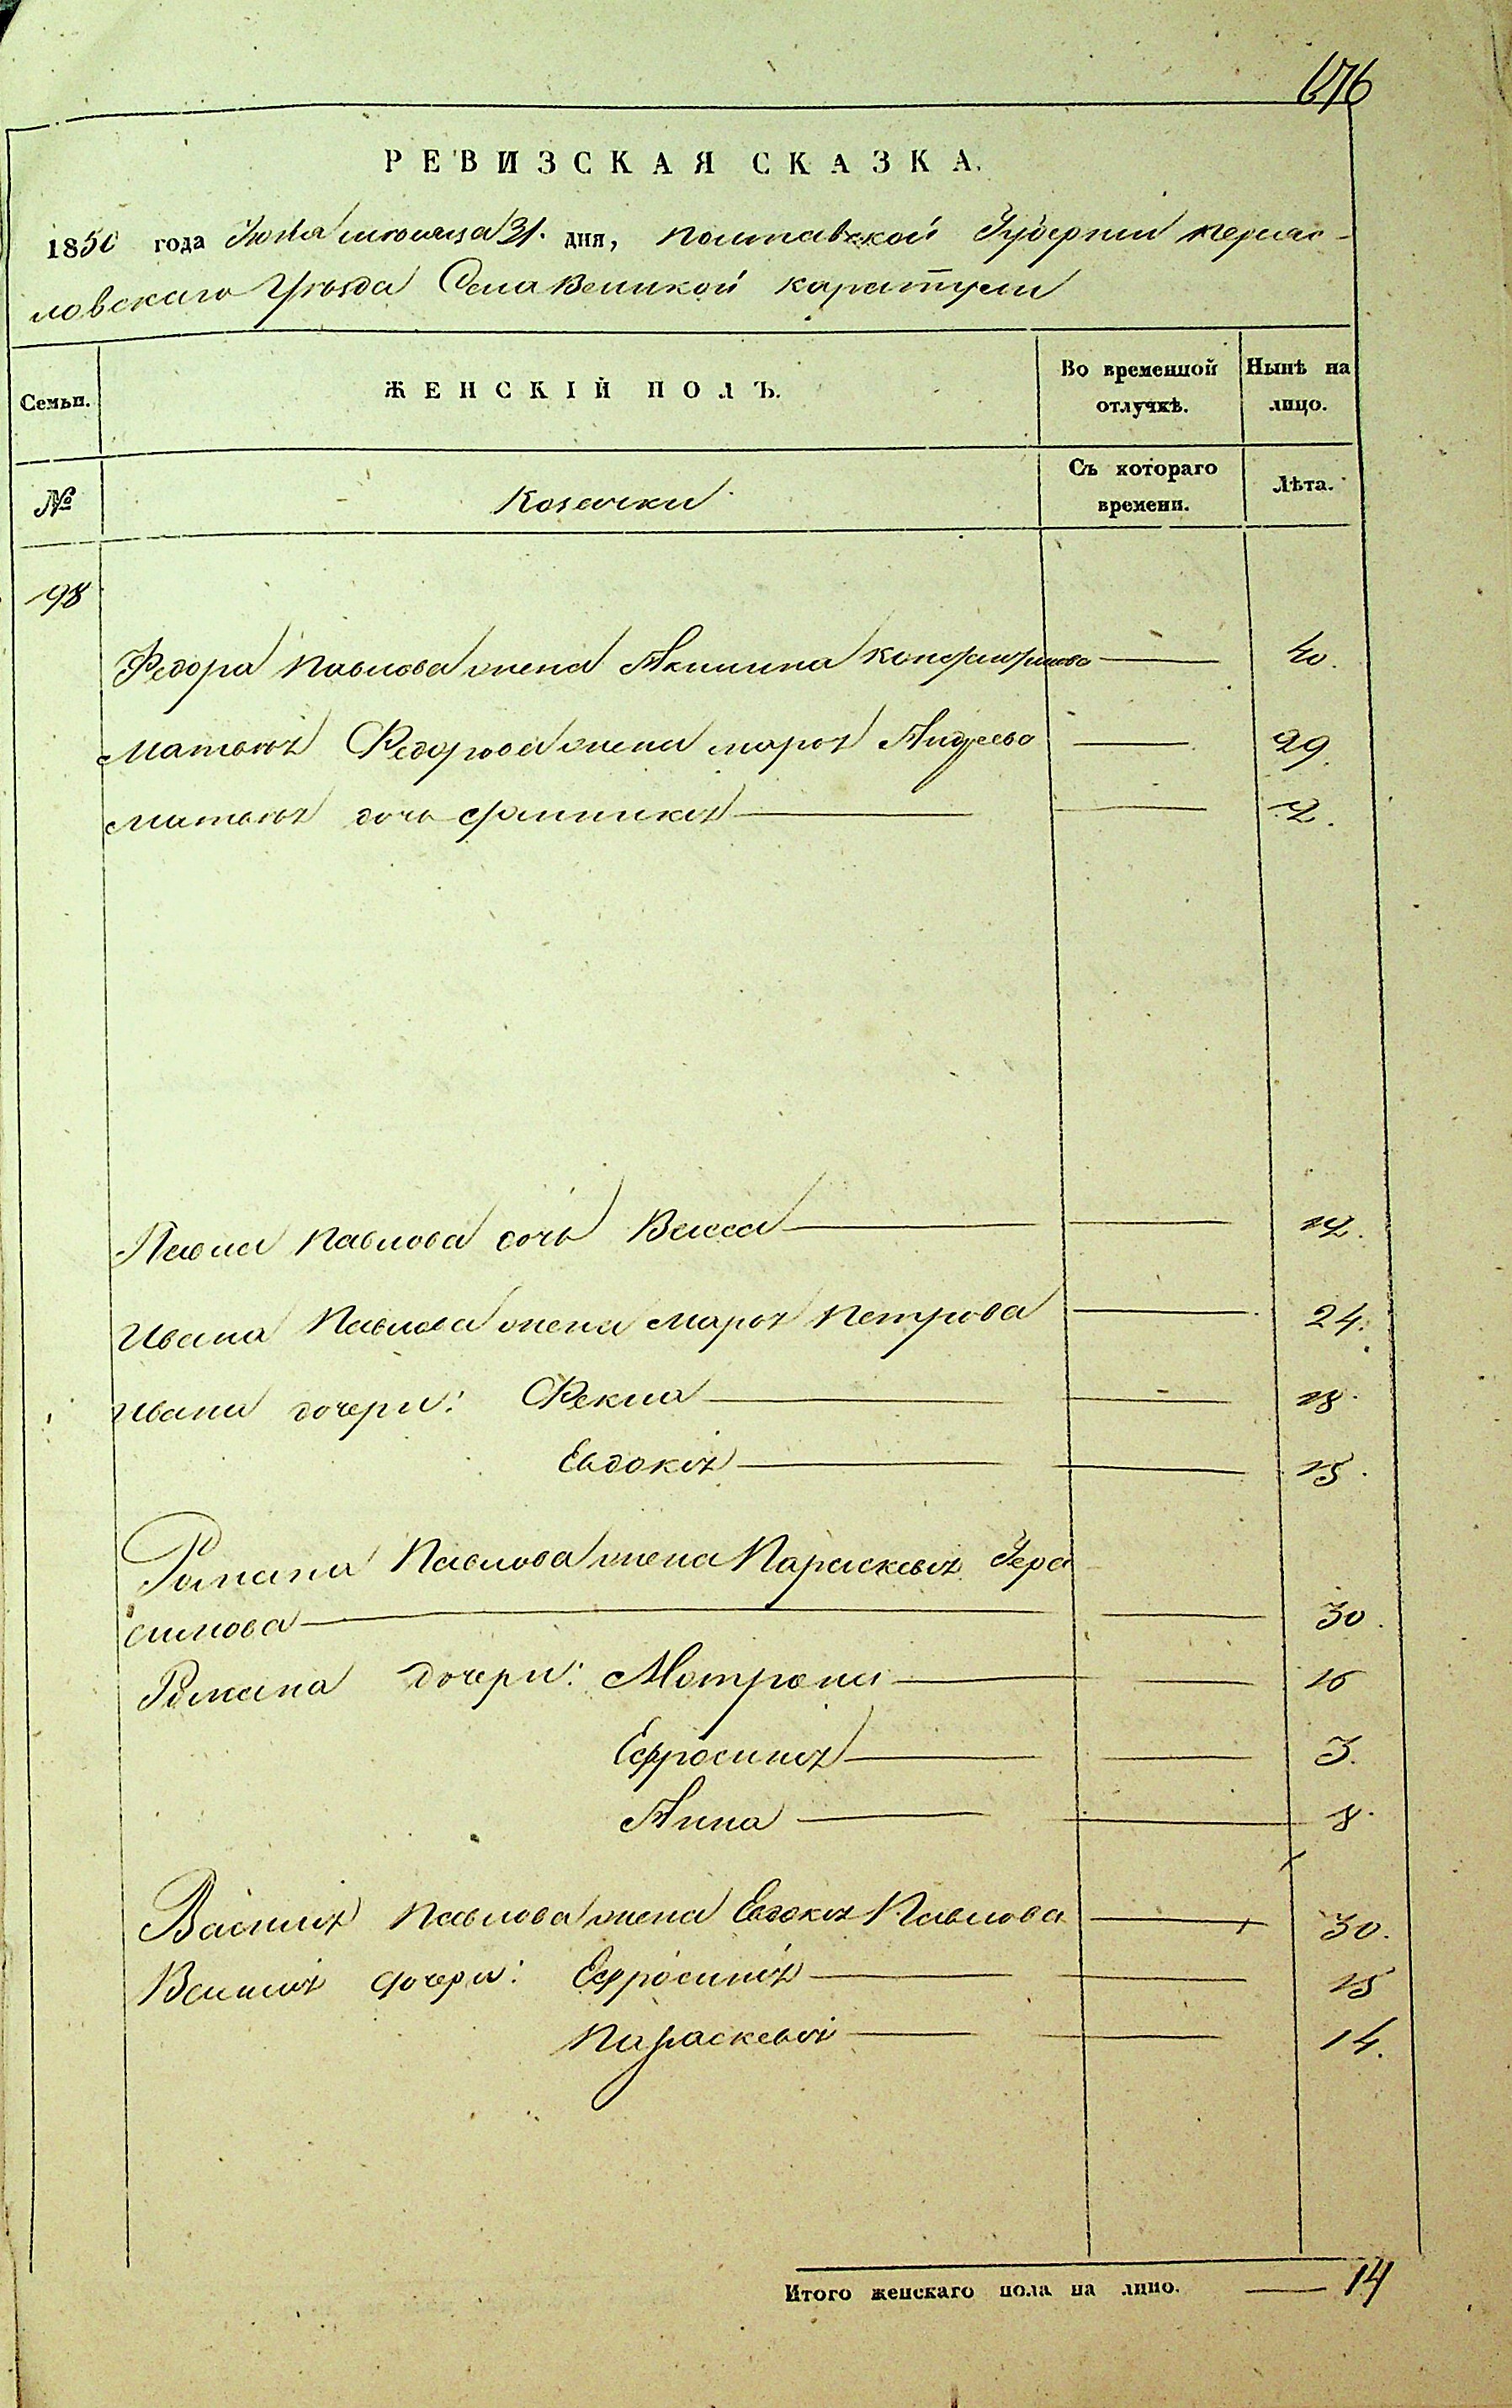 676
РЕВИЗСКАЯ СКАЗКА.
1850 года Июля месяца 31. дня, Полтавской Губернии Переяс-
ловскаго Уѣзда Села Великой Каратули
Семьи. ЖЕНСКІЙ ПОЛЪ. Во временной отлучкѣ. Нынѣ на лицо.
№ Козачки Съ котораго времени. Лѣта.
98
Федора Павлова жена Акилина — 40.
Матвѣя Федорова жена Марья Андреева — 29.
Матвѣя дочь — 2.
Павла Павлова дочь Васса — 12.
Ивана Павлова жена Марья Петрова — 24.
Ивана дочери: Фекла — 18.
Евдокія — 15.
Романа Павлова жена Параскевія Гера
симова — 30.
Романа дочери: Мотрона — 16
Ефросинія — 3.
Анна — 8.
Василія Павлова жена Евдокія Павлова — 30.
Василія дочери: Ефросинія — 15
Параскевія — 14.
Итого женскаго пола на лицо. — 14